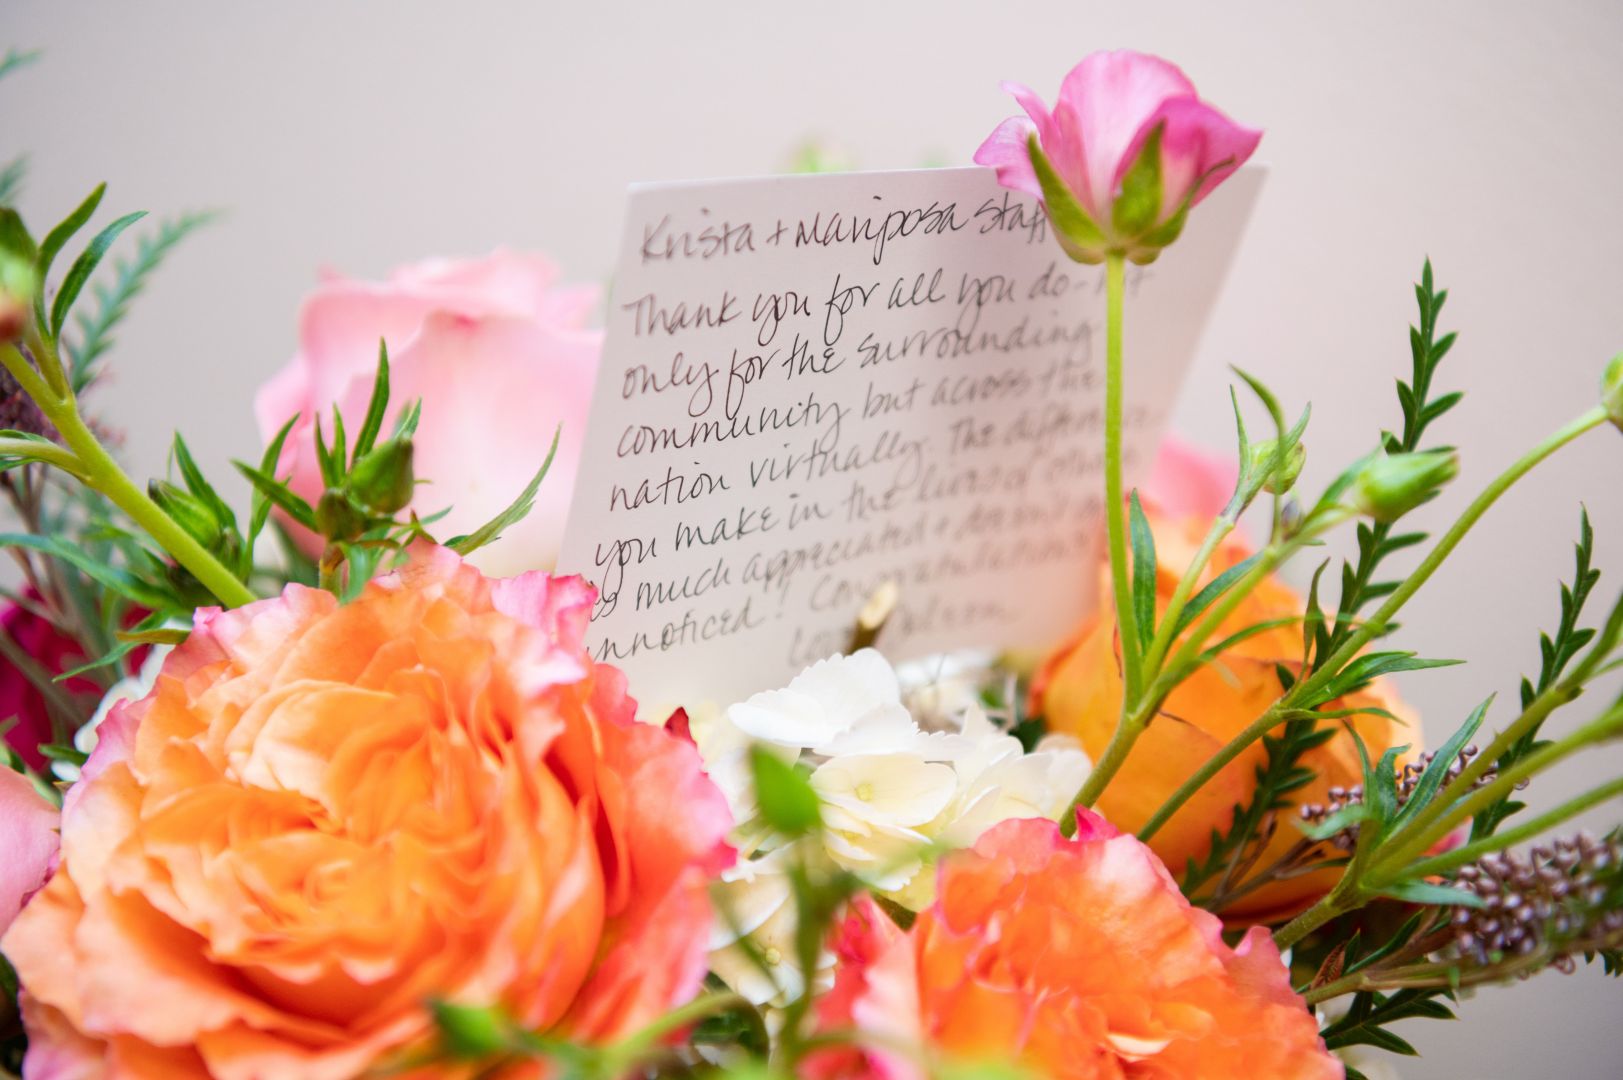 Krista + Mariposa Staff
Thank you for all you do - not
only for the surrounding
community but across the
nation virtually. The difference
you make in the lives of
is much appreciated +
unnoticed! Congratulations
Love